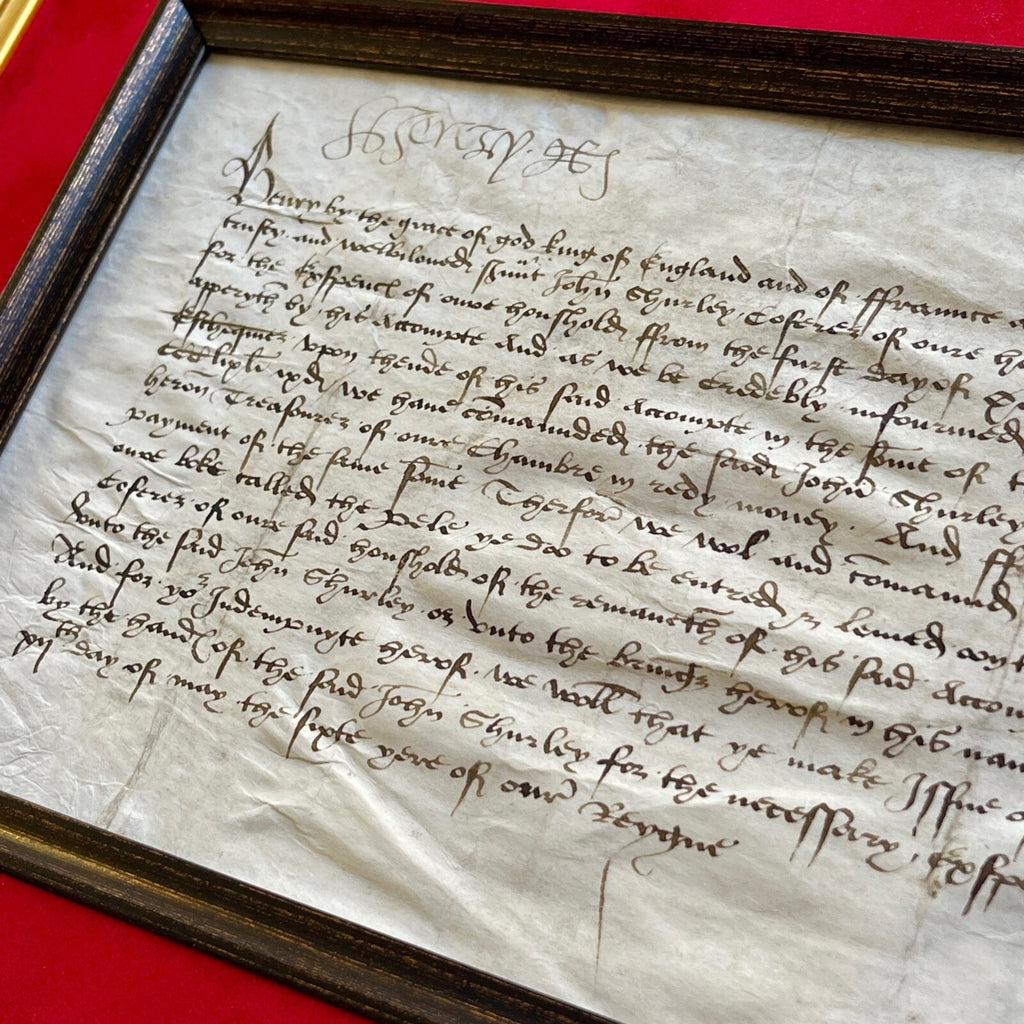 Henry R
Henry by the grace of god king of England and of ffraunce
trusty and welbiloued John Shurley Coferer of oure
for the Exspenc of oure houshold ffrom the furst day of
apperyth by his accompte And as we be credebly infourmed
Eschequer vpon thende of his said accompte in the some of
we haue comaunded the said John Shurley
heron Treasourer of oure Chambre in redy money. And
payment of the same some Therfor we wol and comaund
oure boke called the Pele ye doo to be entred leuied
Coferer of oure said houshold of the remaneth of his said
vnto the said John Shurley or vnto the bringer herof in his
And for yor Indempnyte herof. we woll that ye make Issue
by the hand of the said John Shurley for the necessary
xij th day of may the sixte yere of our Reygne